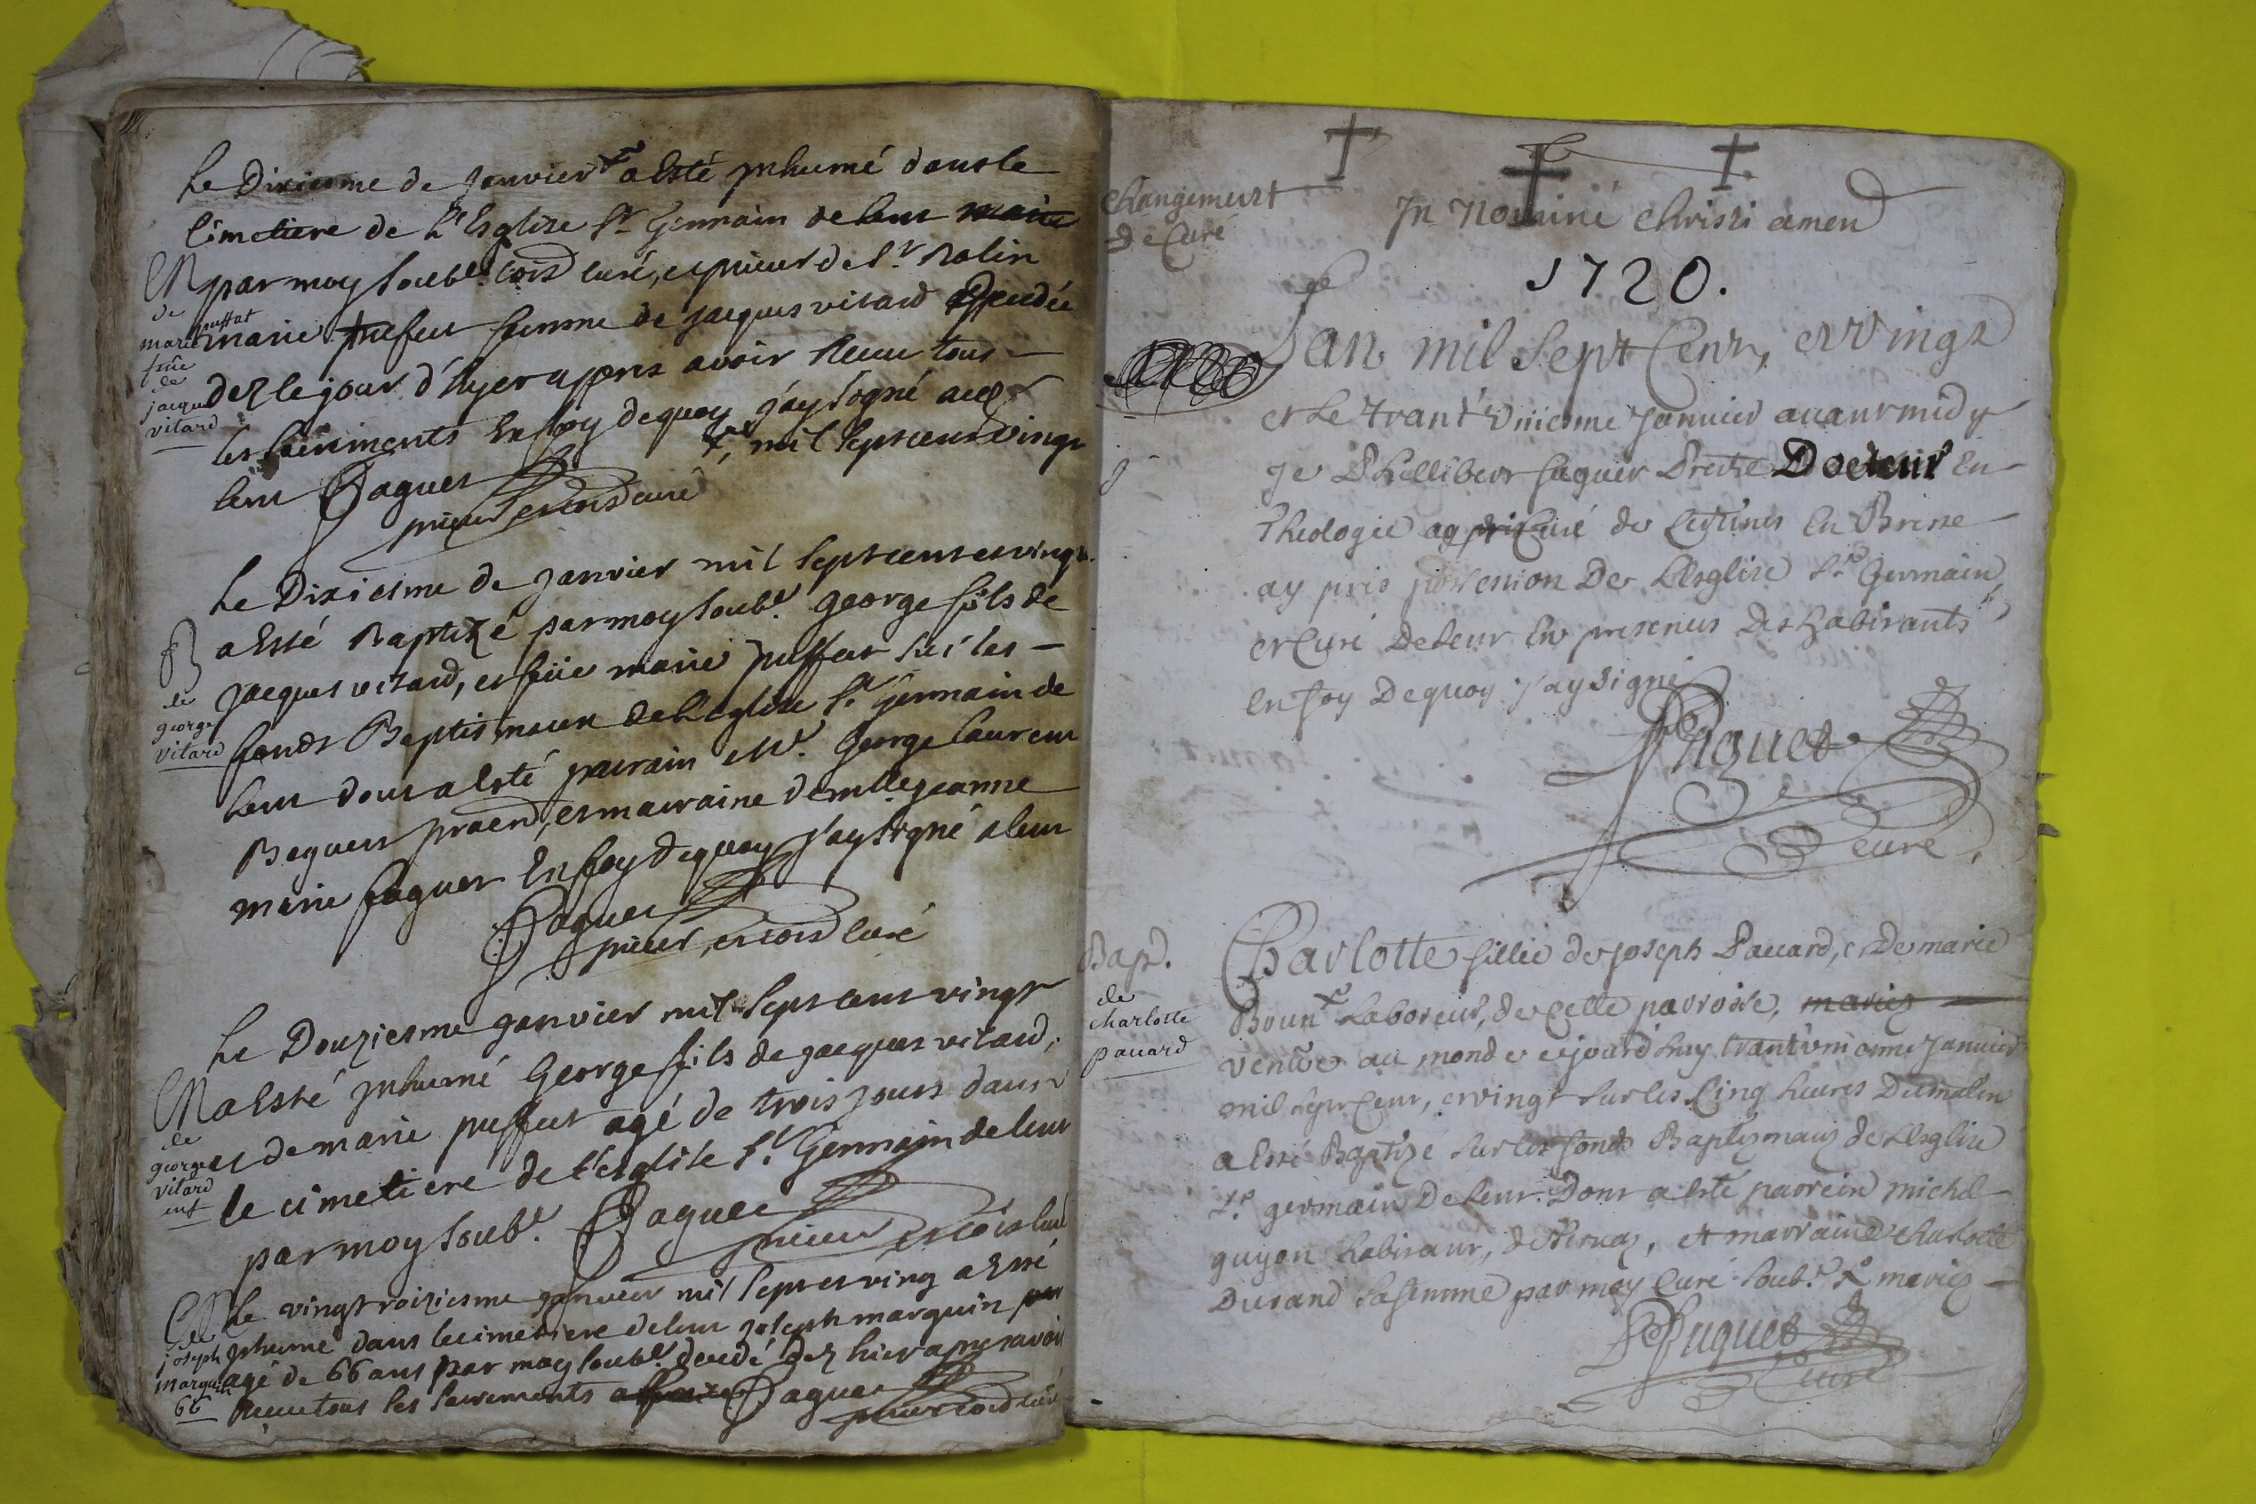 Le Dixieme de Janvier + a esté Inhumé dans le
Cimetiere de L'Esglise St Germain de leur
par moy soubs. cois curé, et prieur de St Rolin
marie puffat femme de Jacques vitard Decedée
dez le jour d'hyer appres avoir Receu tous
les sacrements En foy de quoy j'ay signé aud.
leur Paquet + mil sept cent vingt
prieur et cois curé
M
de
marie puffat
fme
de
jacque
vitard
Le Dixiesme de Janvier mil sept cent et vingt
a Esté Baptizé par moy soubs. george fils de
Jacques vitard, et feüe marie puffat sur les
fonds Baptismaux de L'eglise St germain de
leur dont a Esté parrain Mr. George laurent
Beguet et marraine demlle jeanne
marie paquet En foy de quoy j'ay signé a leur
Paquet
prieur, et cois curé
B
de
george
vitard
Le Douziesme janvier mil sept cent vingt
a Esté Inhumé George fils de jacques vitard,
et de marie puffat agé de trois jours dans
le cimetiere de l'esglise St Germain de leur
par moy soubs. Paquet
prieur et cois curé
M
de
george
vitard
enf
Le vingtroiziesme janvier mil sept et ving a Esté
Inhumé dans le cimetiere de leur joseph marguin
agé de 66 ans par moy soubs. decedé dez hier apres avoir
Receu tous les sacrements Paquet
prieur cois curé
joseph
marguin
66
Changement
de Curé
In Nomine Christi amen
1720.
L'an mil sept Cent, et vingt
et le trant'uniesme Janvier avant midy
Je Phillibert huguet Prestre Docteur En
Theologie Curé de En Bresse
ay pris possession De L'Esglise St Germain,
et Cure De leur En presences Des habitants
En foy De quoy j'ay signé
Huguet
Curé
Bap.
de
charlotte
pauard
Charlotte fillie de joseph Pauard, et De marie
Brun + Laboreur, de Celle parroisse, mariez
venüe au monde cejourd'huy trant'uniesme Janvier
mil sept Cent, et vingt sur les Cinq heures Du matin
a Esté Baptizé sur les fonds Baptismaux de L'Esglise
St germain De leur. Dont a Esté parrein michel
guyon habitant, et marraine charlotte
Durand sa femme par moy Curé soubs. + mariez
Huguet
Curé